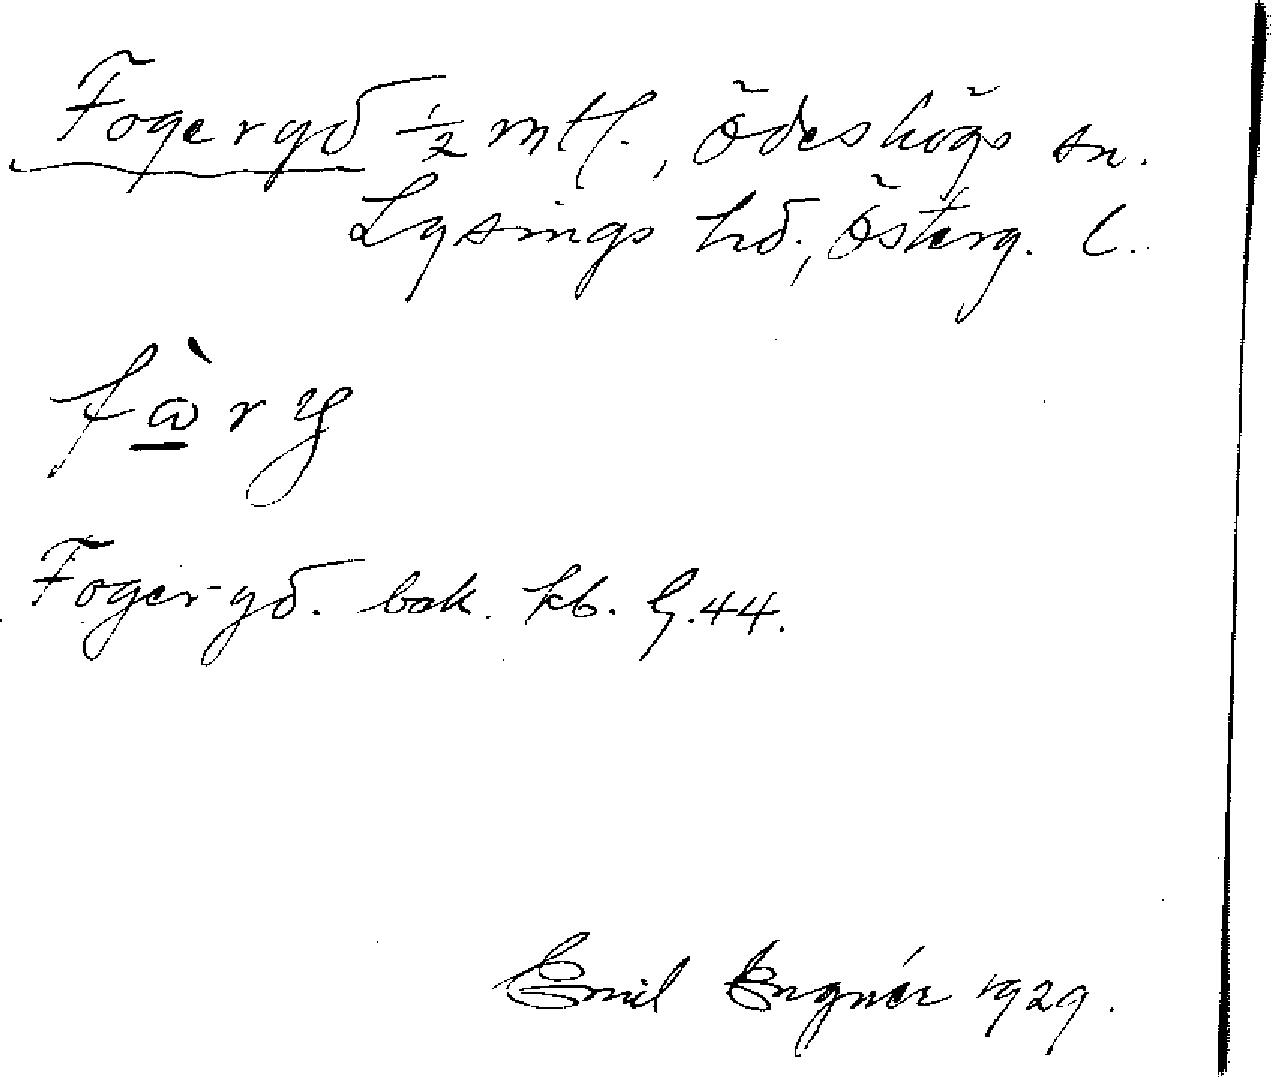 Fogeryd ½ mtl., Ödeshögs sn.
Lysings hd., Österg. l.
Foger-yd. bak. kb. G. 44.
Emil Engnér 1929.